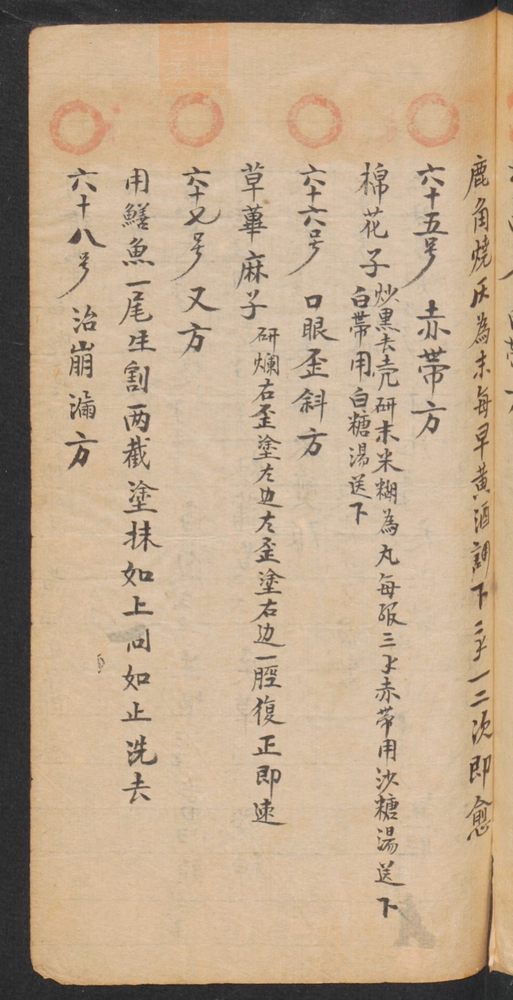 鹿角燒灰為末每早黄酒調下三子一二次即愈
六十五号 赤帶方
棉花子炒黒去壳研末米糊為丸每服三子赤帶用沙糖湯送下
白帶用白糖湯送下
六十六号 口眼歪斜方
草蓽麻子 研爛右歪塗左边左歪塗右边一脛復正即速
六十七号 又方
用鱔魚一尾生割两截塗抹如上同如止洗去
六十八号 治崩漏方